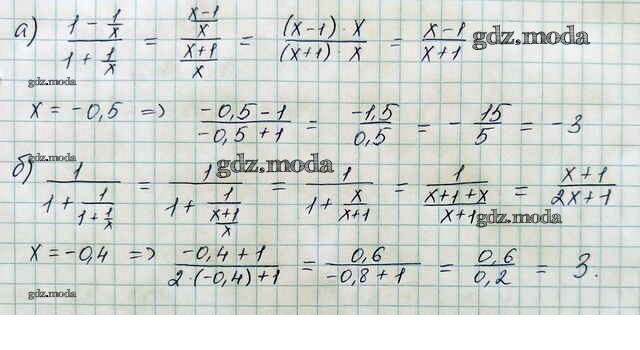 а) (1 - 1/x)/(1 + 1/x) = ((x-1)/x)/((x+1)/x) = ((x-1)·x)/((x+1)·x) = (x-1)/(x+1) gdz.moda
gdz.moda
x = -0,5 => (-0,5-1)/(-0,5+1) = (-1,5)/(0,5) = - 15/5 = -3
gdz.moda
б) 1/(1 + 1/(1 + 1/x)) = 1/(1 + 1/((x+1)/x)) = 1/(1 + x/(x+1)) = 1/((x+1+x)/(x+1)) = (x+1)/(2x+1)
gdz.moda
gdz.moda
x = -0,4 => (-0,4+1)/(2·(-0,4)+1) = 0,6/(-0,8+1) = 0,6/0,2 = 3.
gdz.moda